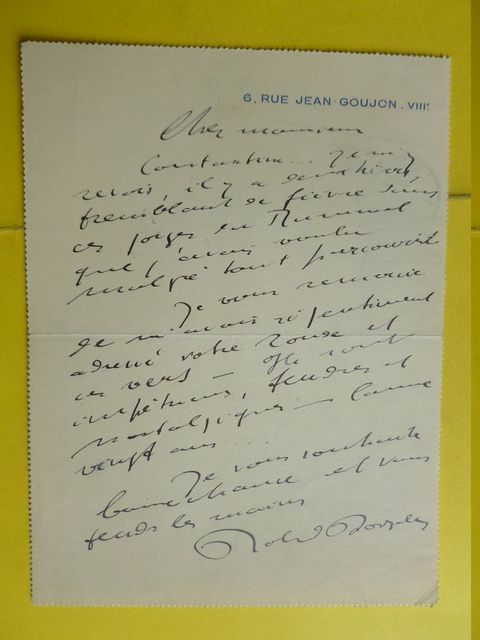 6, RUE JEAN-GOUJON. VIIIᵉ
Cher monsieur
Constantine... Je m'y
revois, il y a deux hivers,
tremblant de fièvre dans
ces gorges du Rummel
que j'avais voulu
malgré tout parcourir
Je vous remercie
de m'avoir si gentiment
adressé votre Ronde et
ces vers — Ils sont
impétueux, tendres et
nostalgiques — comme
vingt ans...
Je vous souhaite
bonne chance et vous
tends les mains
Roland Dorgelès